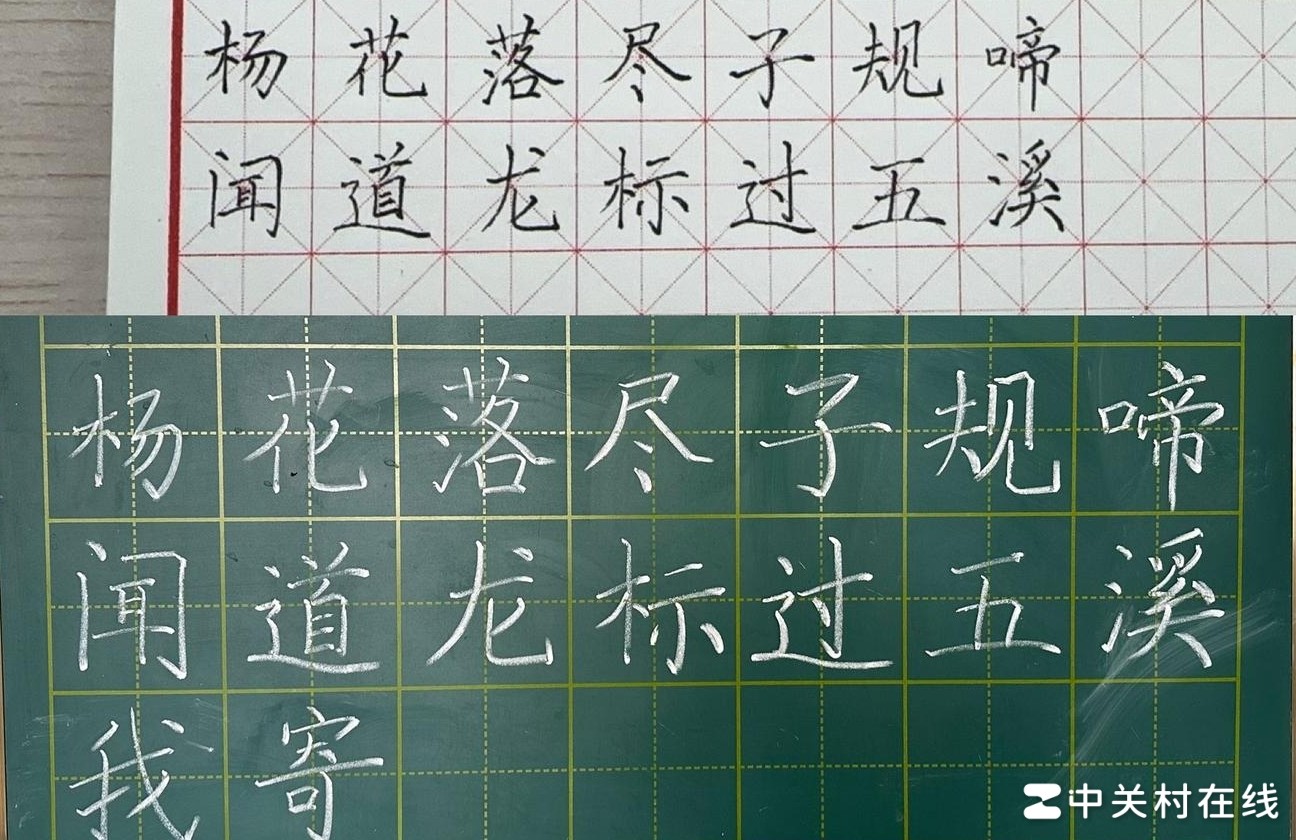 杨花落尽子规啼
闻道龙标过五溪
杨花落尽子规啼
闻道龙标过五溪
我寄
中关村在线